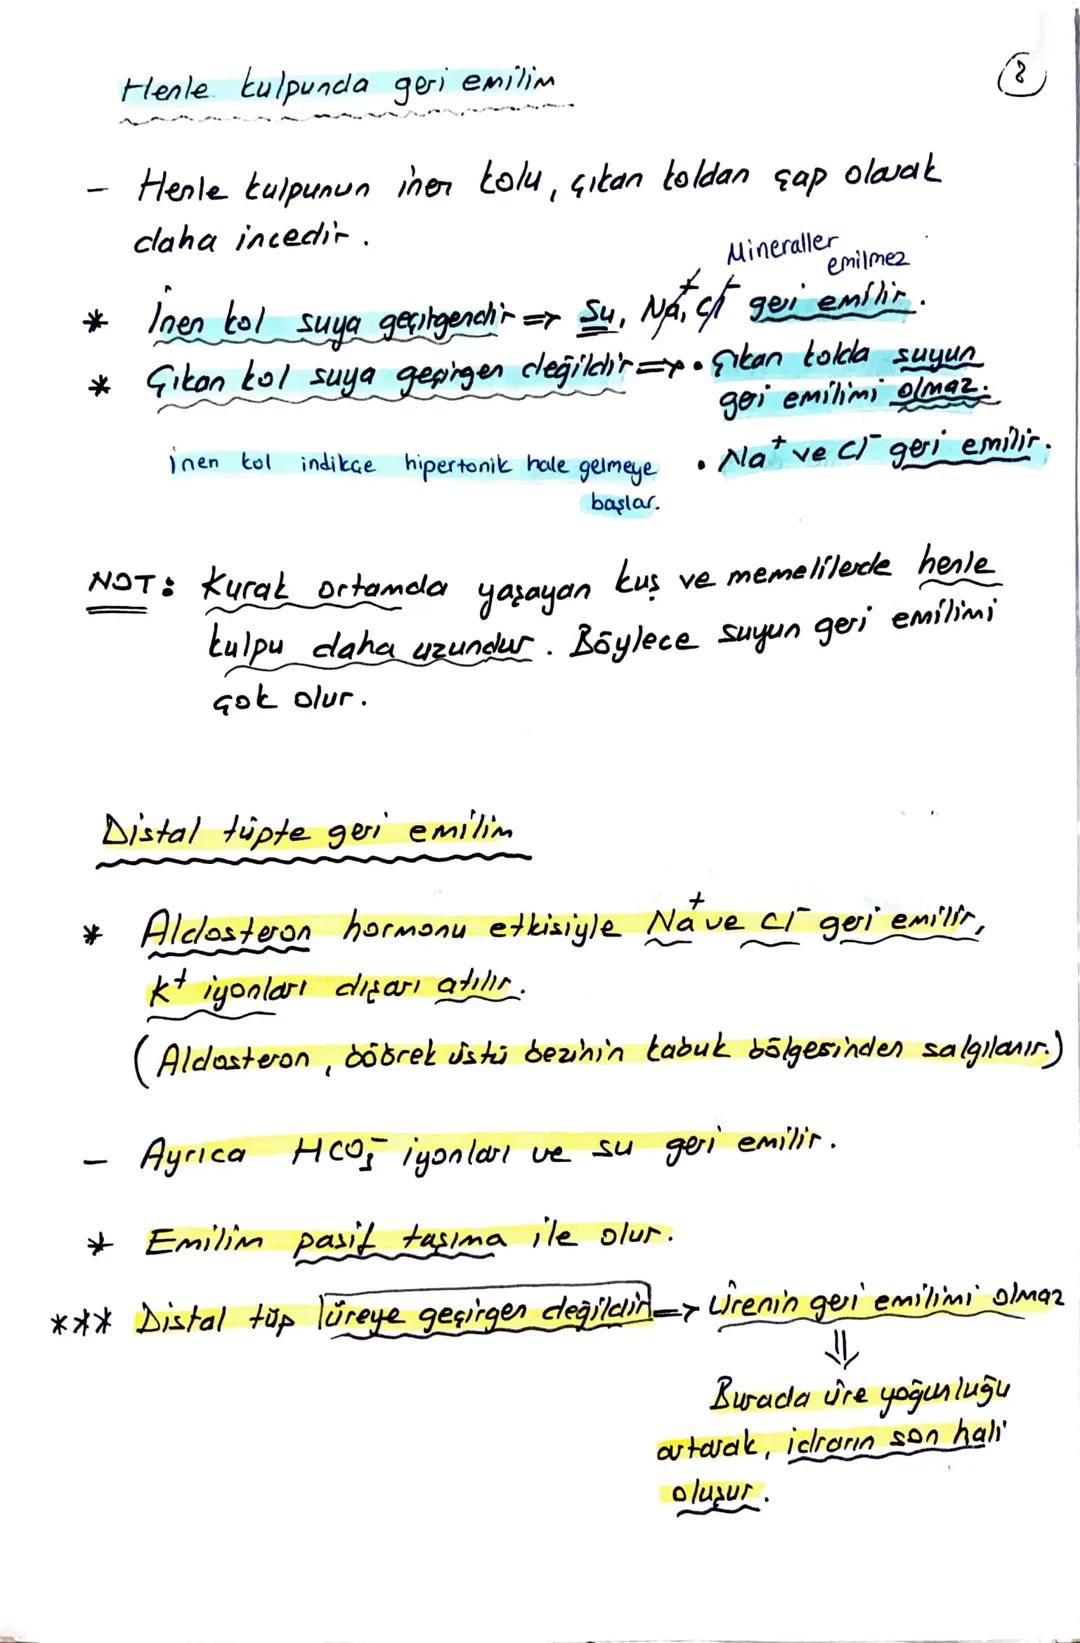 8
Henle kulpunda geri emilim
- Henle kulpunun inen kolu, çıkan koldan çap olarak
daha incedir.
Mineraller
emilmez
* İnen kol suya geçirgendir => Su, Na⁺, Cl⁻ geri emilir.
* Çıkan kol suya geçirgen değildir => • Çıkan kolda suyun
geri emilimi olmaz.
• Na⁺ ve Cl⁻ geri emilir.
inen kol indikçe hipertonik hale gelmeye
başlar.
NOT: Kurak ortamda yaşayan kuş ve memelilerde henle
kulpu daha uzundur. Böylece suyun geri emilimi
çok olur.
Distal tüpte geri emilim
* Aldosteron hormonu etkisiyle Na⁺ ve Cl⁻ geri emilir,
K⁺ iyonları dışarı atılır.
(Aldosteron, böbrek üstü bezinin kabuk bölgesinden salgılanır.)
- Ayrıca HCO₃⁻ iyonları ve su geri emilir.
* Emilim pasif taşıma ile olur.
*** Distal tüp üreye geçirgen değildir => Ürenin geri emilimi olmaz
⇓
Burada üre yoğunluğu
artarak, idrarın son hali
oluşur.